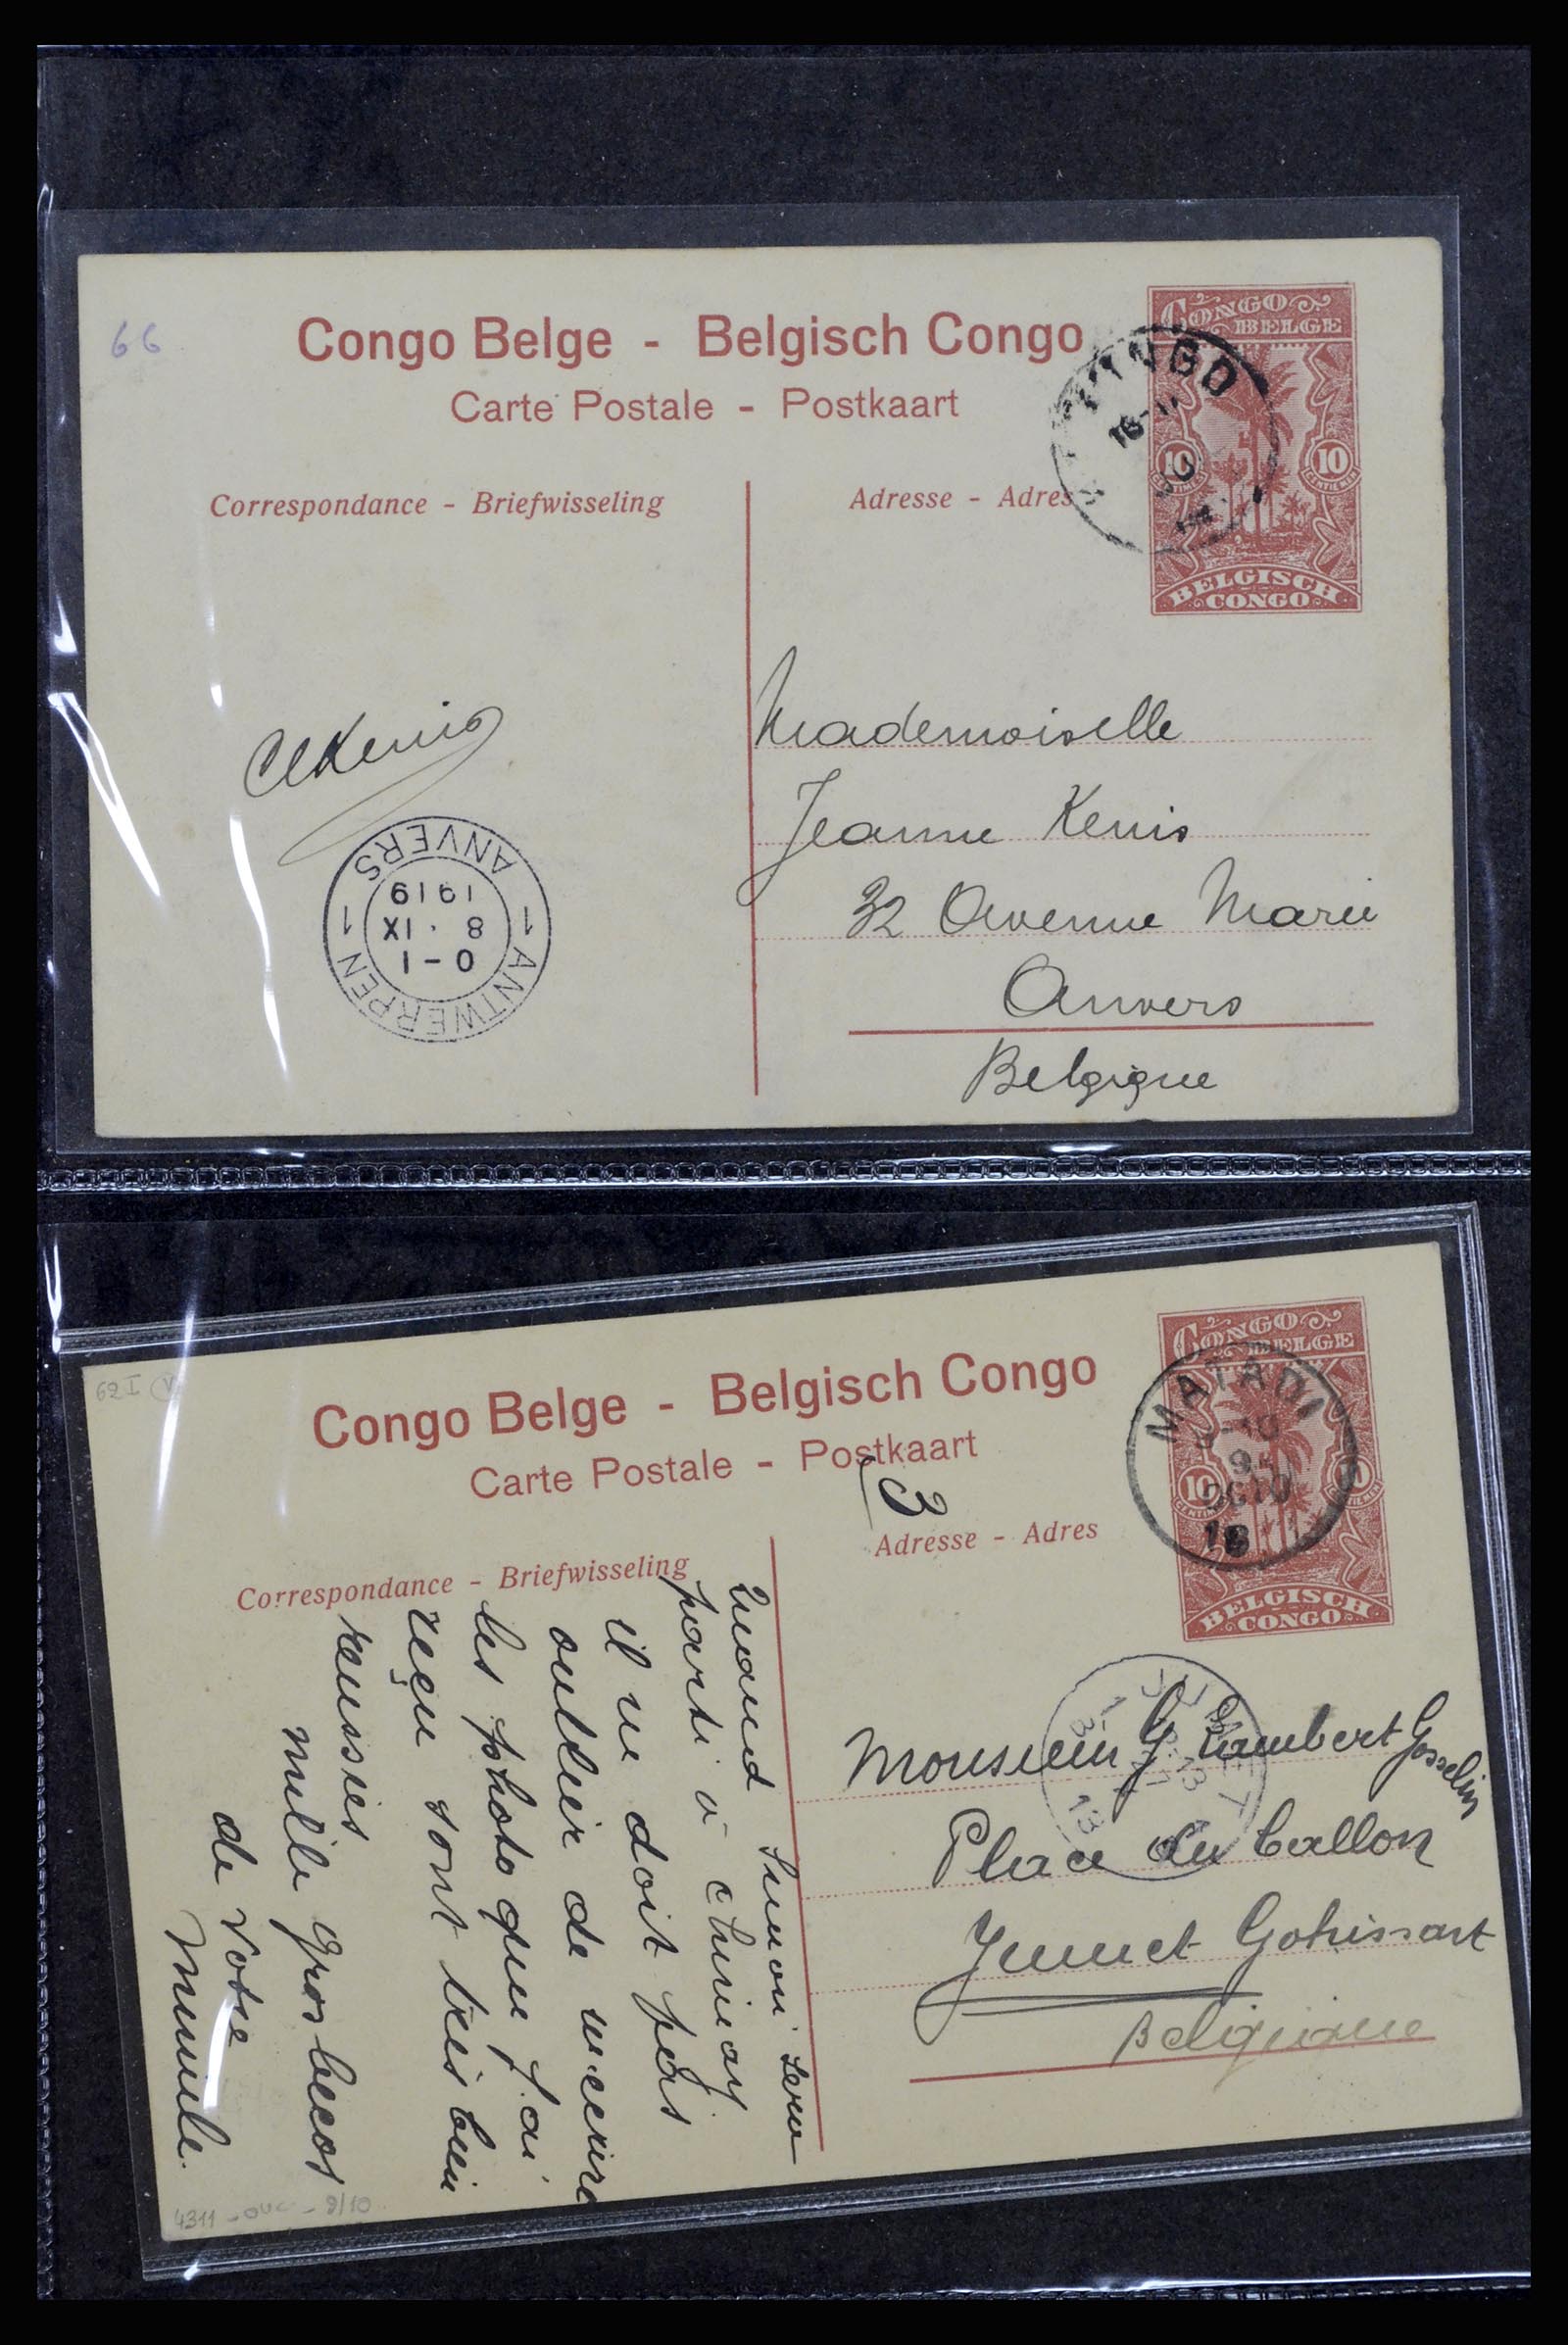 66
Congo Belge - Belgisch Congo
Carte Postale - Postkaart
Correspondance - Briefwisseling
Adresse - Adres
CONGO
BELGE
10
10
BELGISCH
CONGO
ANVERS
1919
8 · IX
0-1
1 ANTWERPEN 1
Mademoiselle
Jeanne Kenis
32 Avenue Marie
Anvers
Belgique
62 I V
Congo Belge - Belgisch Congo
Carte Postale - Postkaart
3
Correspondance - Briefwisseling
Adresse - Adres
CONGO
BELGE
MATADI
9
OCTO
10
BELGISCH
CONGO
Quand Simon sera
parti à Chimay
il ne doit pas
oublier de m'ecrire
les photo que j'ai
reçu sont tres bien
reussies
mille gros becos
de votre
Mimile.
JUMET
13
Monsieur G Lambert Gosselin
Place du Ballon
Jumet Gohissart
Belgique
4311 - 9/10